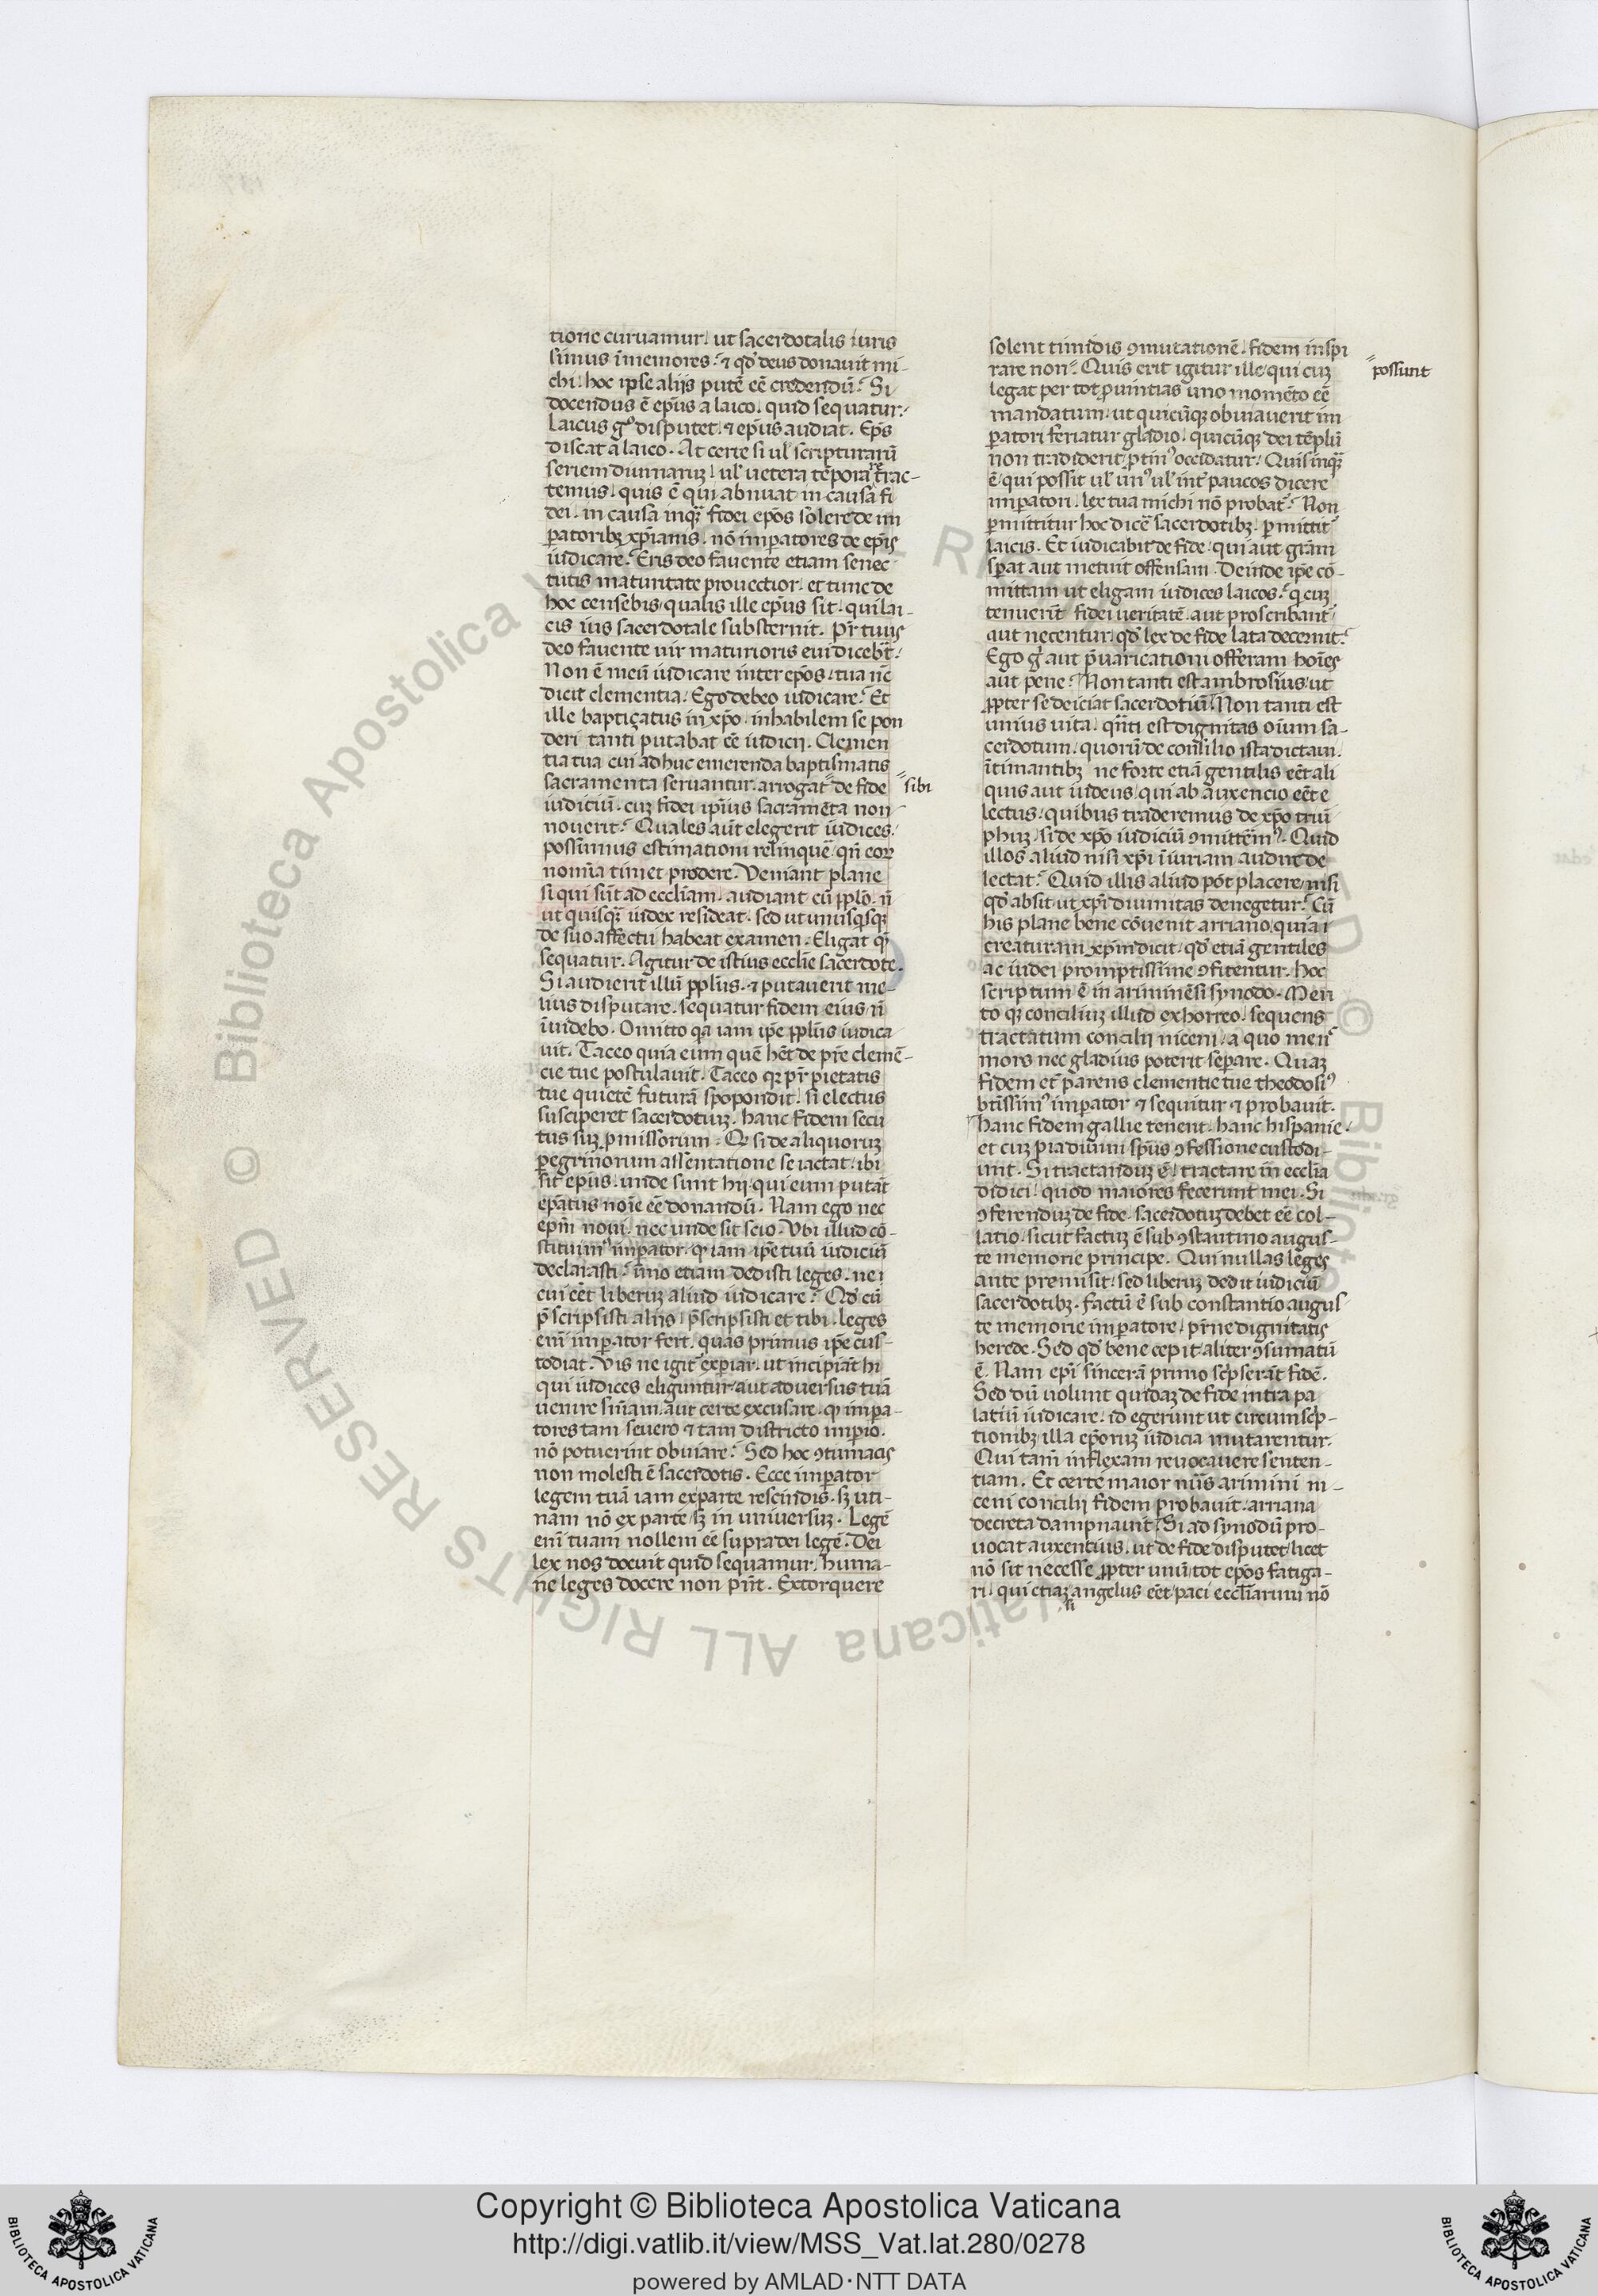 tione curuamur, ut sacerdotalis iuris
simus īmemores? & qđ deus donauit mi-
chi, hoc ipse aliis putē eē credendū? Si
docendus ē ep̄us a laico, quid sequatur?
Laicus gͦ disputet, & ep̄us audiat. Ep̄s
discat a laico. At certe si ul̓ scripturarū
seriem diuinaruꝫ, ul̓ uetera tēpora retrac-
temus, quis ē qui abnuat in causa fi
dei, in causa inquā fidei ep̄os solere de im
ꝑatoribꝫ xp̄ianis, nō imꝑatores de ep̄is
iudicare. Eris deo fauente etiam senec
tutis maturitate prouectior, et tunc de
hoc censebis qualis ille ep̄us sit, qui lai-
cis ius sacerdotale substernit. Pr̄ tuus
deo fauente uir maturioris eui dicebat̓
Non ē meū iudicare inter ep̄os, tua nc̄
dicit clementia, Ego debeo iudicare. Et
ille baptiçatus in xp̄o, inhabilem se pon
deri tanti putabat eē iudicii. Clemen
tia tua cui adhuc emerenda baptismatis
sacramenta seruantur, arrogat⁼ de fide ⁼sibi
iudiciū, cuꝫ fidei ipsius sacramēta non
nouerit? Quales aūt elegerit iudices,
possumus estimationi relinquē, qn̄ eoꝝ
nomīa timet prodere. Veniant plane
si qui sūt ad ecclīam, audiant cū pplo, n̄
ut quisquā iudex resideat, sed ut unusqsqꝫ
de suo affectu habeat examen. Eligat quē
sequatur. Agitur de istius ecclīe sacerdote.
Si audierit illū pplus, & putauerit me-
lius disputare, sequatur fidem eius n̄
inuidebo. Omitto qa iam ipē pplus iudica
uit. Taceo quia eum quē hēt de pr̄e clemē-
cie tue postulauit. Taceo qꝫ pr̄ pietatis
tue quietē futurā spopondit, si electus
susciperet sacerdotiuꝫ. hanc fidem secu
tus suꝫ ꝓmissorum. Qͦ si de aliquoruꝫ
ꝑegrinorum assentatione se iactat, ibi
sit ep̄us, unde sunt hii, qui eum putāt
ep̄atus noīe eē donandū. Nam ego nec
ep̄m noui, nec unde sit scio. Vbi illud cō-
stituim̓ imꝑator, qͦ iam ipē tuū iudiciū
declarasti? īmo etiam dedisti leges, ne i
cui eēt liberuꝫ aliud iudicare? Qđ cū
p̄scripsisti aliis, p̄scripsisti et tibi, leges
enī imꝑator fert, quas primus ipē cus-
todiat. Vis ne igit̓ exꝑiar, ut incipiāt hi
qui iudices eliguntur, aut aduersus tuā
uenire sn̄iam, aut certe excusare, qͦ imꝑa-
tores tam seuero & tam districto imꝑio
nō potuerint obuiare? Sed hoc ꝯtumacis
non molesti ē sacerdotis. Ecce imꝑator
legem tuā iam ex parte rescindis, sꝫ uti-
nam nō ex parte, sꝫ in uniuersuꝫ. Legē
enī tuam nollem eē supra dei legē. Dei
lex nos docuit quid sequamur, huma-
ne leges docere non pn̄t. Extorquere
solent timidis ꝯmutationē, fidem inspi
rare non⁼. Quis erit igitur ille, qui cuꝫ ⁼possunt
legat per tot ꝓuintias uno momēto eē
mandatum, ut quicūqꝫ obuiauerit im
ꝑatori feriatur gladio, quicūqꝫ dei tēplū
non tradiderit, ꝓtin̓ occidatur. Quis inquā
ē, qui possit ul̓ un̓ ul̓ int̓ paucos dicere
imꝑatori, lex tua michi nō probat̓? Non
ꝑmittitur hoc dicē sacerdotibꝫ, ꝑmittit̓
laicis. Et iudicabit de fide, qui aut grām
sꝑat aut metuit offensam. Deinde ipē cō-
mittam ut eligam iudices laicos? q cuꝫ
tenuerīt fidei ueritatē, aut proscribant̓
aut necentur, qđ lex de fide lata decernit?
Ego gͦ aut p̄uaricationi offeram hoīes
aut pene? Non tanti est ambrosius, ut
ꝓpter se deiciat sacerdotiū. Non tanti est
unius uita, qn̄ti est dignitas oīum sa-
cerdotum, quorū de consilio ista dictam
ītimantibꝫ ne forte etiā gentilis eēt ali
quis aut iudeus, qui ab auxencio eēt e
lectus, quibus traderemus de xp̄o triū
phuꝫ, si de xp̄o iudiciū ꝯmittem̓. Quid
illos aliud nisi xp̄i iniuriam audire de
lectat? Quid illis aliud pōt placere, nisi
qđ absit, ut xp̄i diuinitas denegetur? Cū
his plane bene cōuenit arriano, quia i
creaturam xp̄m dicit, qđ etiā gentiles
ac iudei promptissime ꝯfitentur. hoc
scriptum ē in ariminēsi synodo. Meri
to qꝫ conciliuꝫ illud exhorreo, sequens
tractatum concilii niceni, a quo me n̄
mors nec gladius poterit seꝑare. Quaꝫ
fidem et̄ parens clementie tue theodosi̓
bt̄issim̓ imꝑator & sequitur & probauit.
hanc fidem gallie tenent, hanc hispanie,
et cuꝫ pia diuini sp̄us ꝯfessione custodi-
unt. Si tractanduꝫ ē, tractare in ecclīa
didici, quod maiores fecerunt mei. Si
ꝯferenduꝫ de fide, sacerdotuꝫ debet eē col-
latio, sicut factuꝫ ē sub ꝯstantino augus-
te memorie principe. Qui nullas leges
ante premisit, sed liberuꝫ dedit iudiciū
sacerdotibꝫ. factū ē sub constantio augus
te memorie imꝑatore, pr̄ne dignitatis
herede. Sed qđ bene cepit, aliter ꝯsumatū
ē. Nam ep̄i sincerā primo scp̄serāt fidē.
Sed dū uolunt quidaꝫ de fide intra pa
latiū iudicare, id egerunt ut circumscp̄-
tionibꝫ illa ep̄oruꝫ iudicia mutarentur.
Qui tam̄ inflexam reuocauere senten-
tiam. Et certe maior nūs arimini ni-
ceni concilii fidem probauit, arriana
decreta dampnauit. Si ad synodū pro-
uocat auxentius, ut de fide disputet, licet
nō sit necesse ꝓpter unū tot ep̄os fatiga-
ri, qui etiaꝫ si angelus eēt, paci eccl̄iarum nō
Copyright © Biblioteca Apostolica Vaticana
http://digi.vatlib.it/view/MSS_Vat.lat.280/0278
powered by AMLAD·NTT DATA
BIBLIOTECA APOSTOLICA VATICANA
BIBLIOTECA APOSTOLICA VATICANA
© Biblioteca Apostolica Vaticana ALL RIGHTS RESERVED